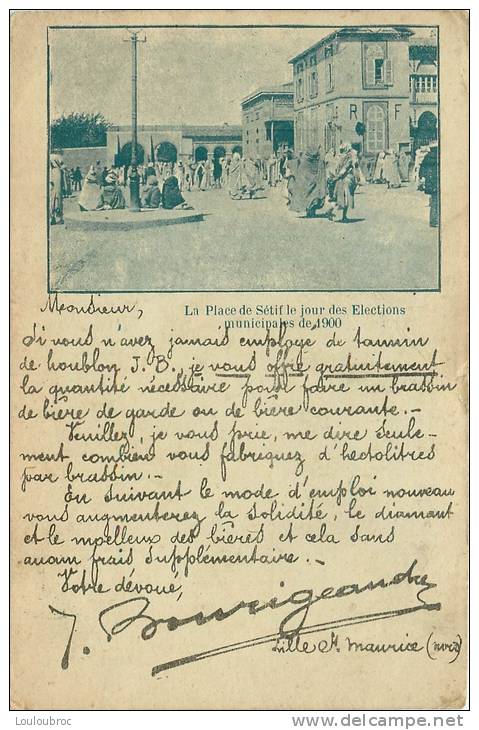 R F
La Place de Sétif le jour des Elections
municipales de 1900
Monsieur,
Si vous n'avez jamais employé de tannin
de houblon J. B., je vous offre gratuitement
la quantité nécessaire pour faire un brassin
de bière de garde ou de bière courante. -
Veuillez, je vous prie, me dire seule-
ment combien vous fabriquez d'hectolitres
par brassin. -
En suivant le mode d'emploi nouveau
vous augmenterez la solidité, le diamant
et le moelleux des bières et cela sans
aucun frais supplémentaire. -
Votre dévoué,
J. Bourigeaud
Lille St Maurice (nord)
Louloubroc
http://www.delcampe.net